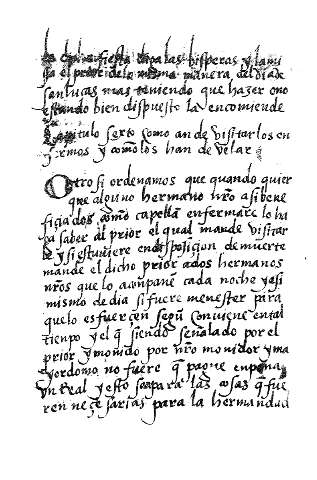 la dicha fiesta digalas bisperas y la mi
sa el prior de la misma manera del dia de
san lucas mas teniendo que hazer o no
estando bien dispuesto la encomiende
Capitulo serto como an de visitar los en
fermos y como los han de velar
Otro si ordenamos que quando quier
que alguno hermano nro asi bene
ficiados como capellan enfermare lo ha
ga saber al prior el qual mande visitar
le y si estuviere en disposiçion de muerte
mande el dicho prior a dos hermanos
nros que lo acompañe cada noche y esi
mismo de dia si fuere menester para
que lo esfuerçen segun conviene en tal
tienpo y el q siendo señalado por el
prior y movido por nro monidor y ma
yordomo no fuere q pague en pena
un Real y esto sea para las cosas q fue
ren neçesarias para la hermandad